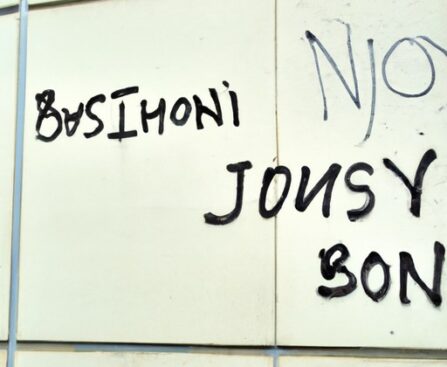 NJOY
BASIMONi
JOHSY
BON